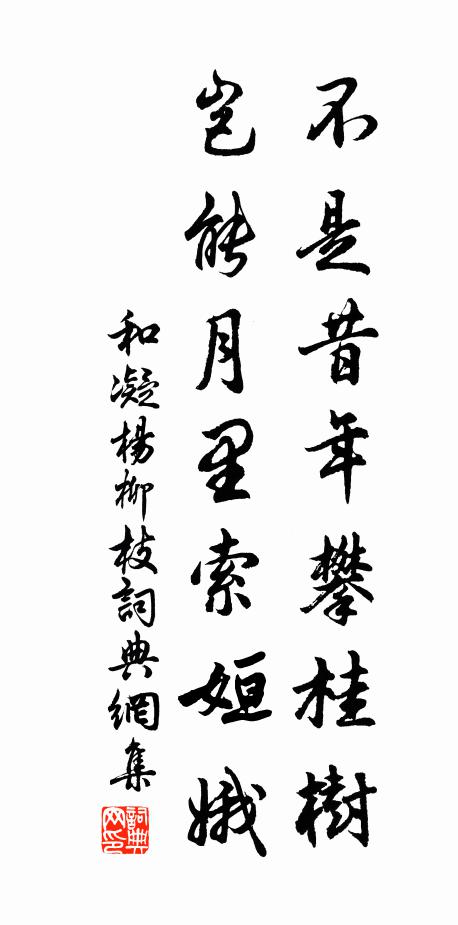 不是昔年攀桂樹
岂能月里索姮娥
和凝楊柳枝詞典網集
詞典网印